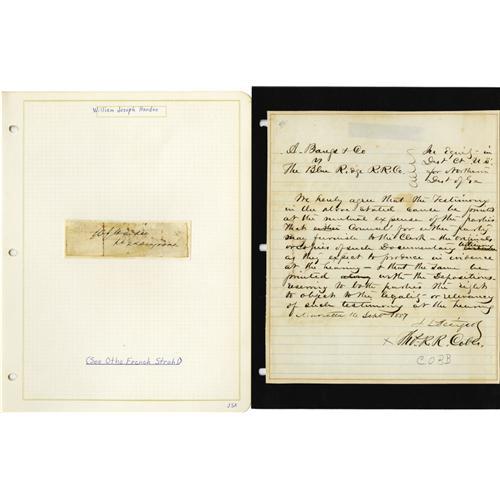 William Joseph Hardee
W J Hardee
(See Otho French Strahl)
JSX
A. Bangs & Co
vs
The Blue Ridge R.R. Co.
In Equity in
Dist Ct U.S.
for Northern
Dist of Ga
We hereby agree that the testimony
in the above stated cause be printed
at the mutual expense of the parties
That either Counsel for either party
may furnish to the Clerk the originals
or copies of such Documentary
as they expect to produce in evidence
at the hearing & that the same be
printed along with the Depositions
reserving to both parties the right
to object to the legality or relevancy
of such testimony at the hearing
Marietta 16 Sept 1857
x Tho. R. R. Cobb.
COBB